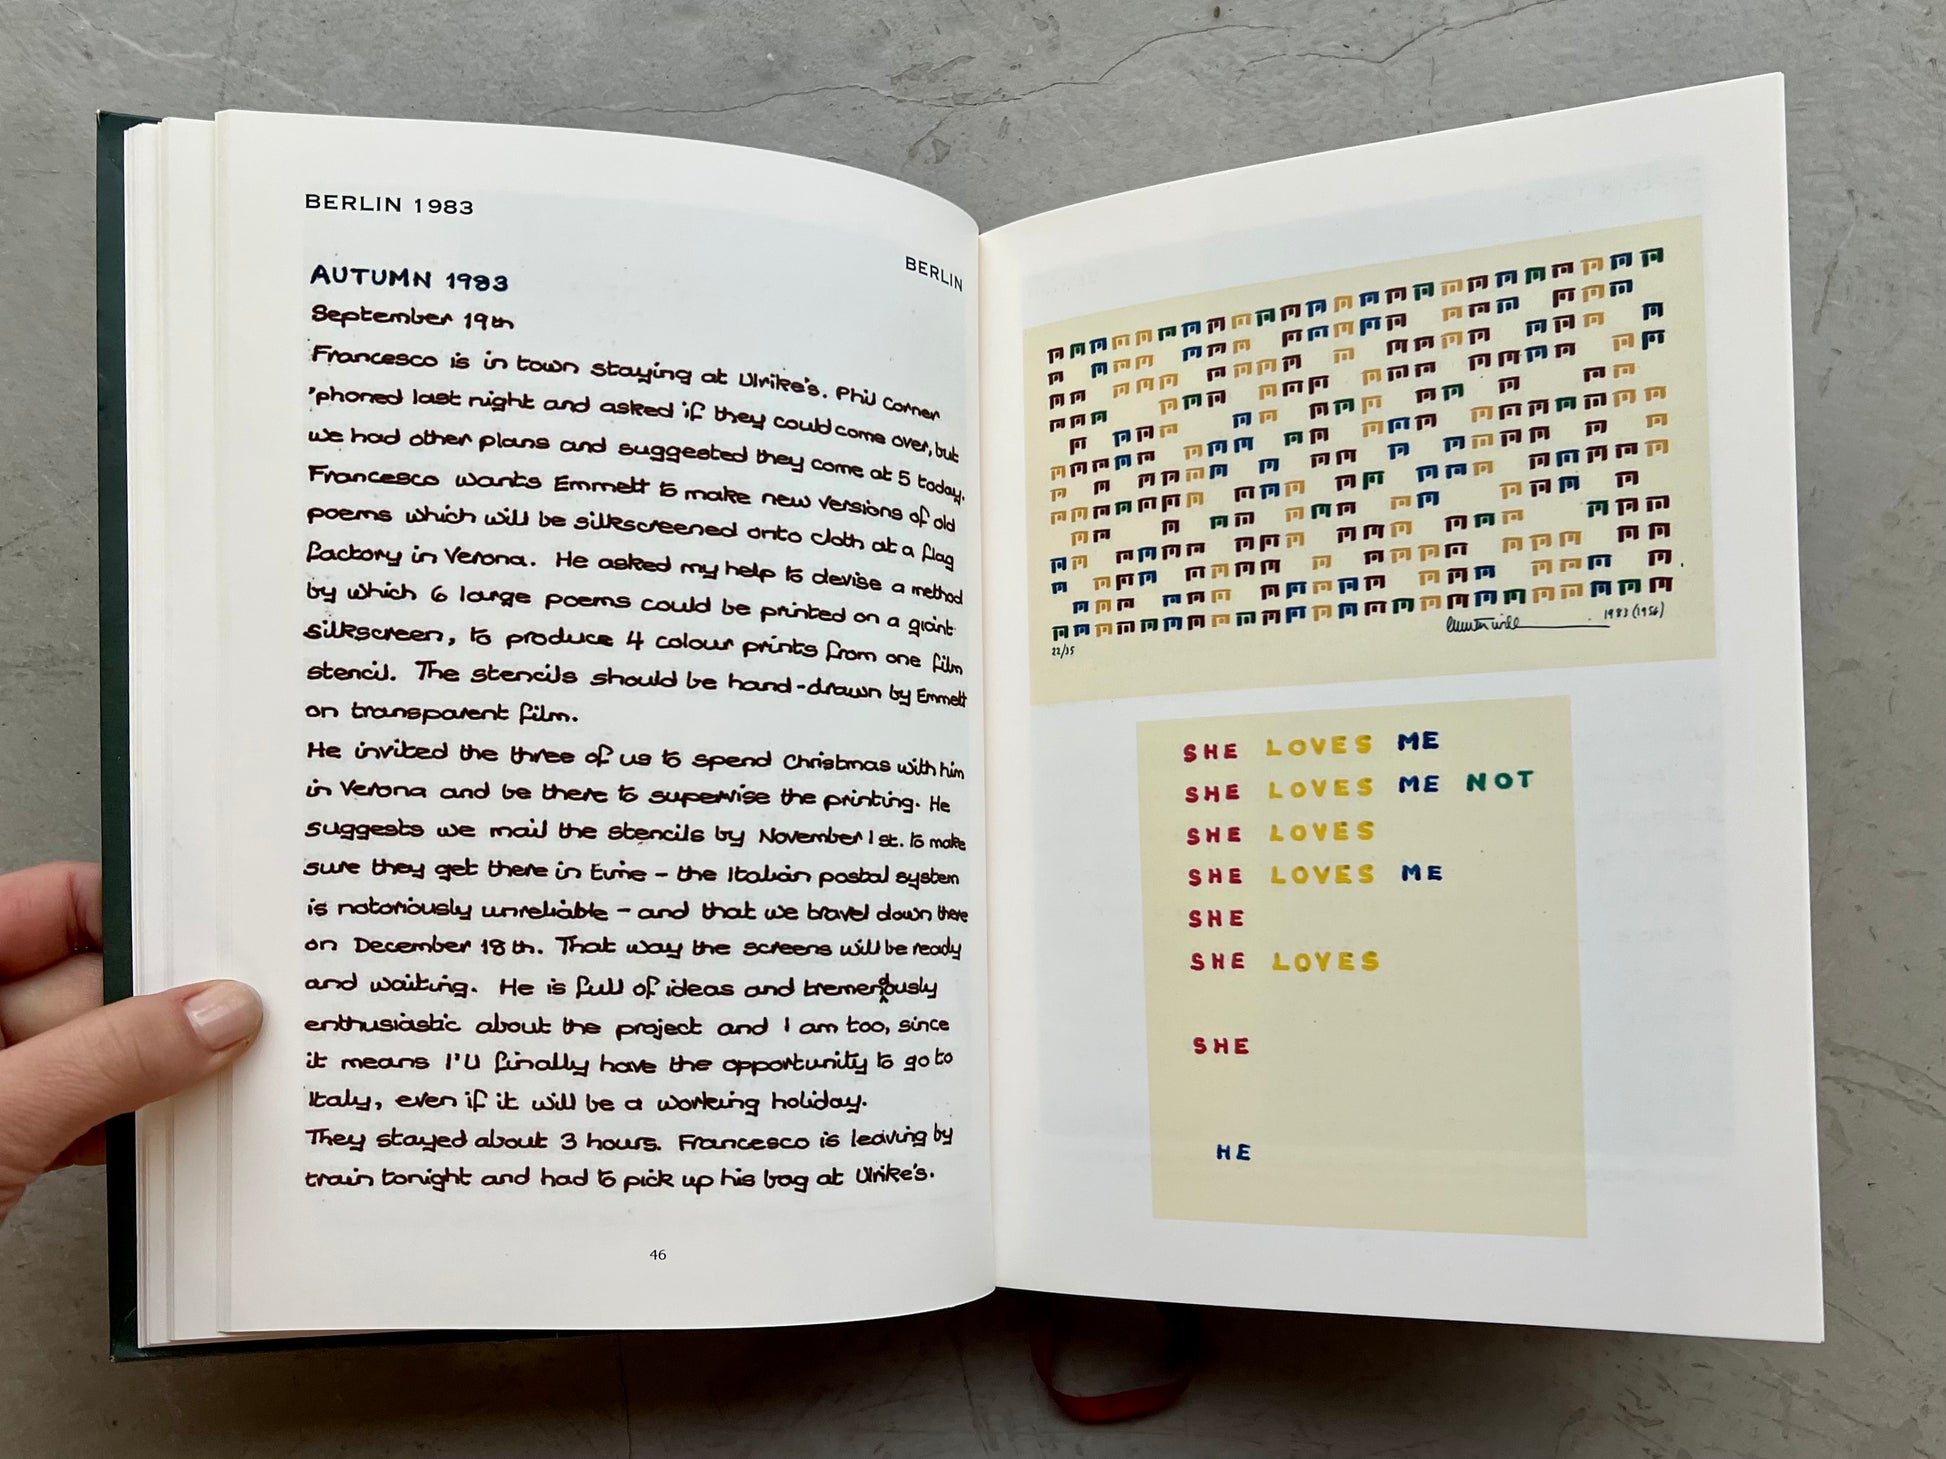 BERLIN 1983
BERLIN
AUTUMN 1983
September 19th
Francesco is in town staying at Ulrike's. Phil Corner
'phoned last night and asked if they could come over, but
we had other plans and suggested they come at 5 today.
Francesco wants Emmett to make new versions of old
poems which will be silkscreened onto cloth at a flag
factory in Verona. He asked my help to devise a method
by which 6 large poems could be printed on a giant
silkscreen, to produce 4 colour prints from one film
stencil. The stencils should be hand-drawn by Emmett
on transparent film.
He invited the three of us to spend Christmas with him
in Verona and be there to supervise the printing. He
suggests we mail the stencils by November 1st. to make
sure they get there in time – the Italian postal system
is notoriously unreliable – and that we travel down there
on December 18th. That way the screens will be ready
and waiting. He is full of ideas and tremendously
enthusiastic about the project and I am too, since
it means I'll finally have the opportunity to go to
Italy, even if it will be a working holiday.
They stayed about 3 hours. Francesco is leaving by
train tonight and had to pick up his bag at Ulrike's.
46
22/35
1983 (1956)
SHE LOVES ME
SHE LOVES ME NOT
SHE LOVES
SHE LOVES ME
SHE
SHE LOVES
SHE
HE